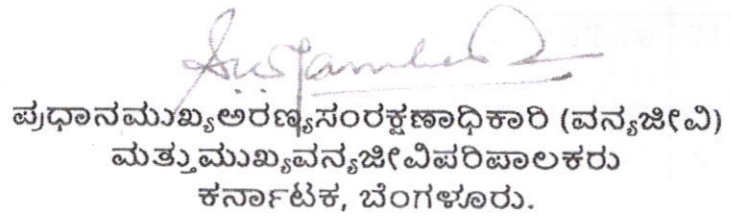 ಪ್ರಧಾನಮುಖ್ಯಅರಣ್ಯಸಂರಕ್ಷಣಾಧಿಕಾರಿ (ವನ್ಯಜೀವಿ)
ಮತ್ತುಮುಖ್ಯವನ್ಯಜೀವಿಪರಿಪಾಲಕರು
ಕರ್ನಾಟಕ, ಬೆಂಗಳೂರು.